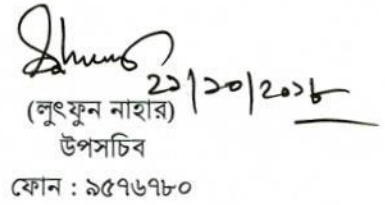 ২১/১০/২০১৮
(লুৎফুন নাহার)
উপসচিব
ফোন : ৯৫৭৬৭৮০